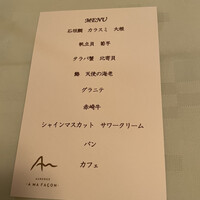 MENU
石垣鯛 カラスミ 大根
帆立貝 菊芋
タラバ蟹 比雲貝
鶉 天使の海老
グラニテ
赤崎牛
シャインマスカット サワークリーム
パン
カフェ
A MA FAÇON